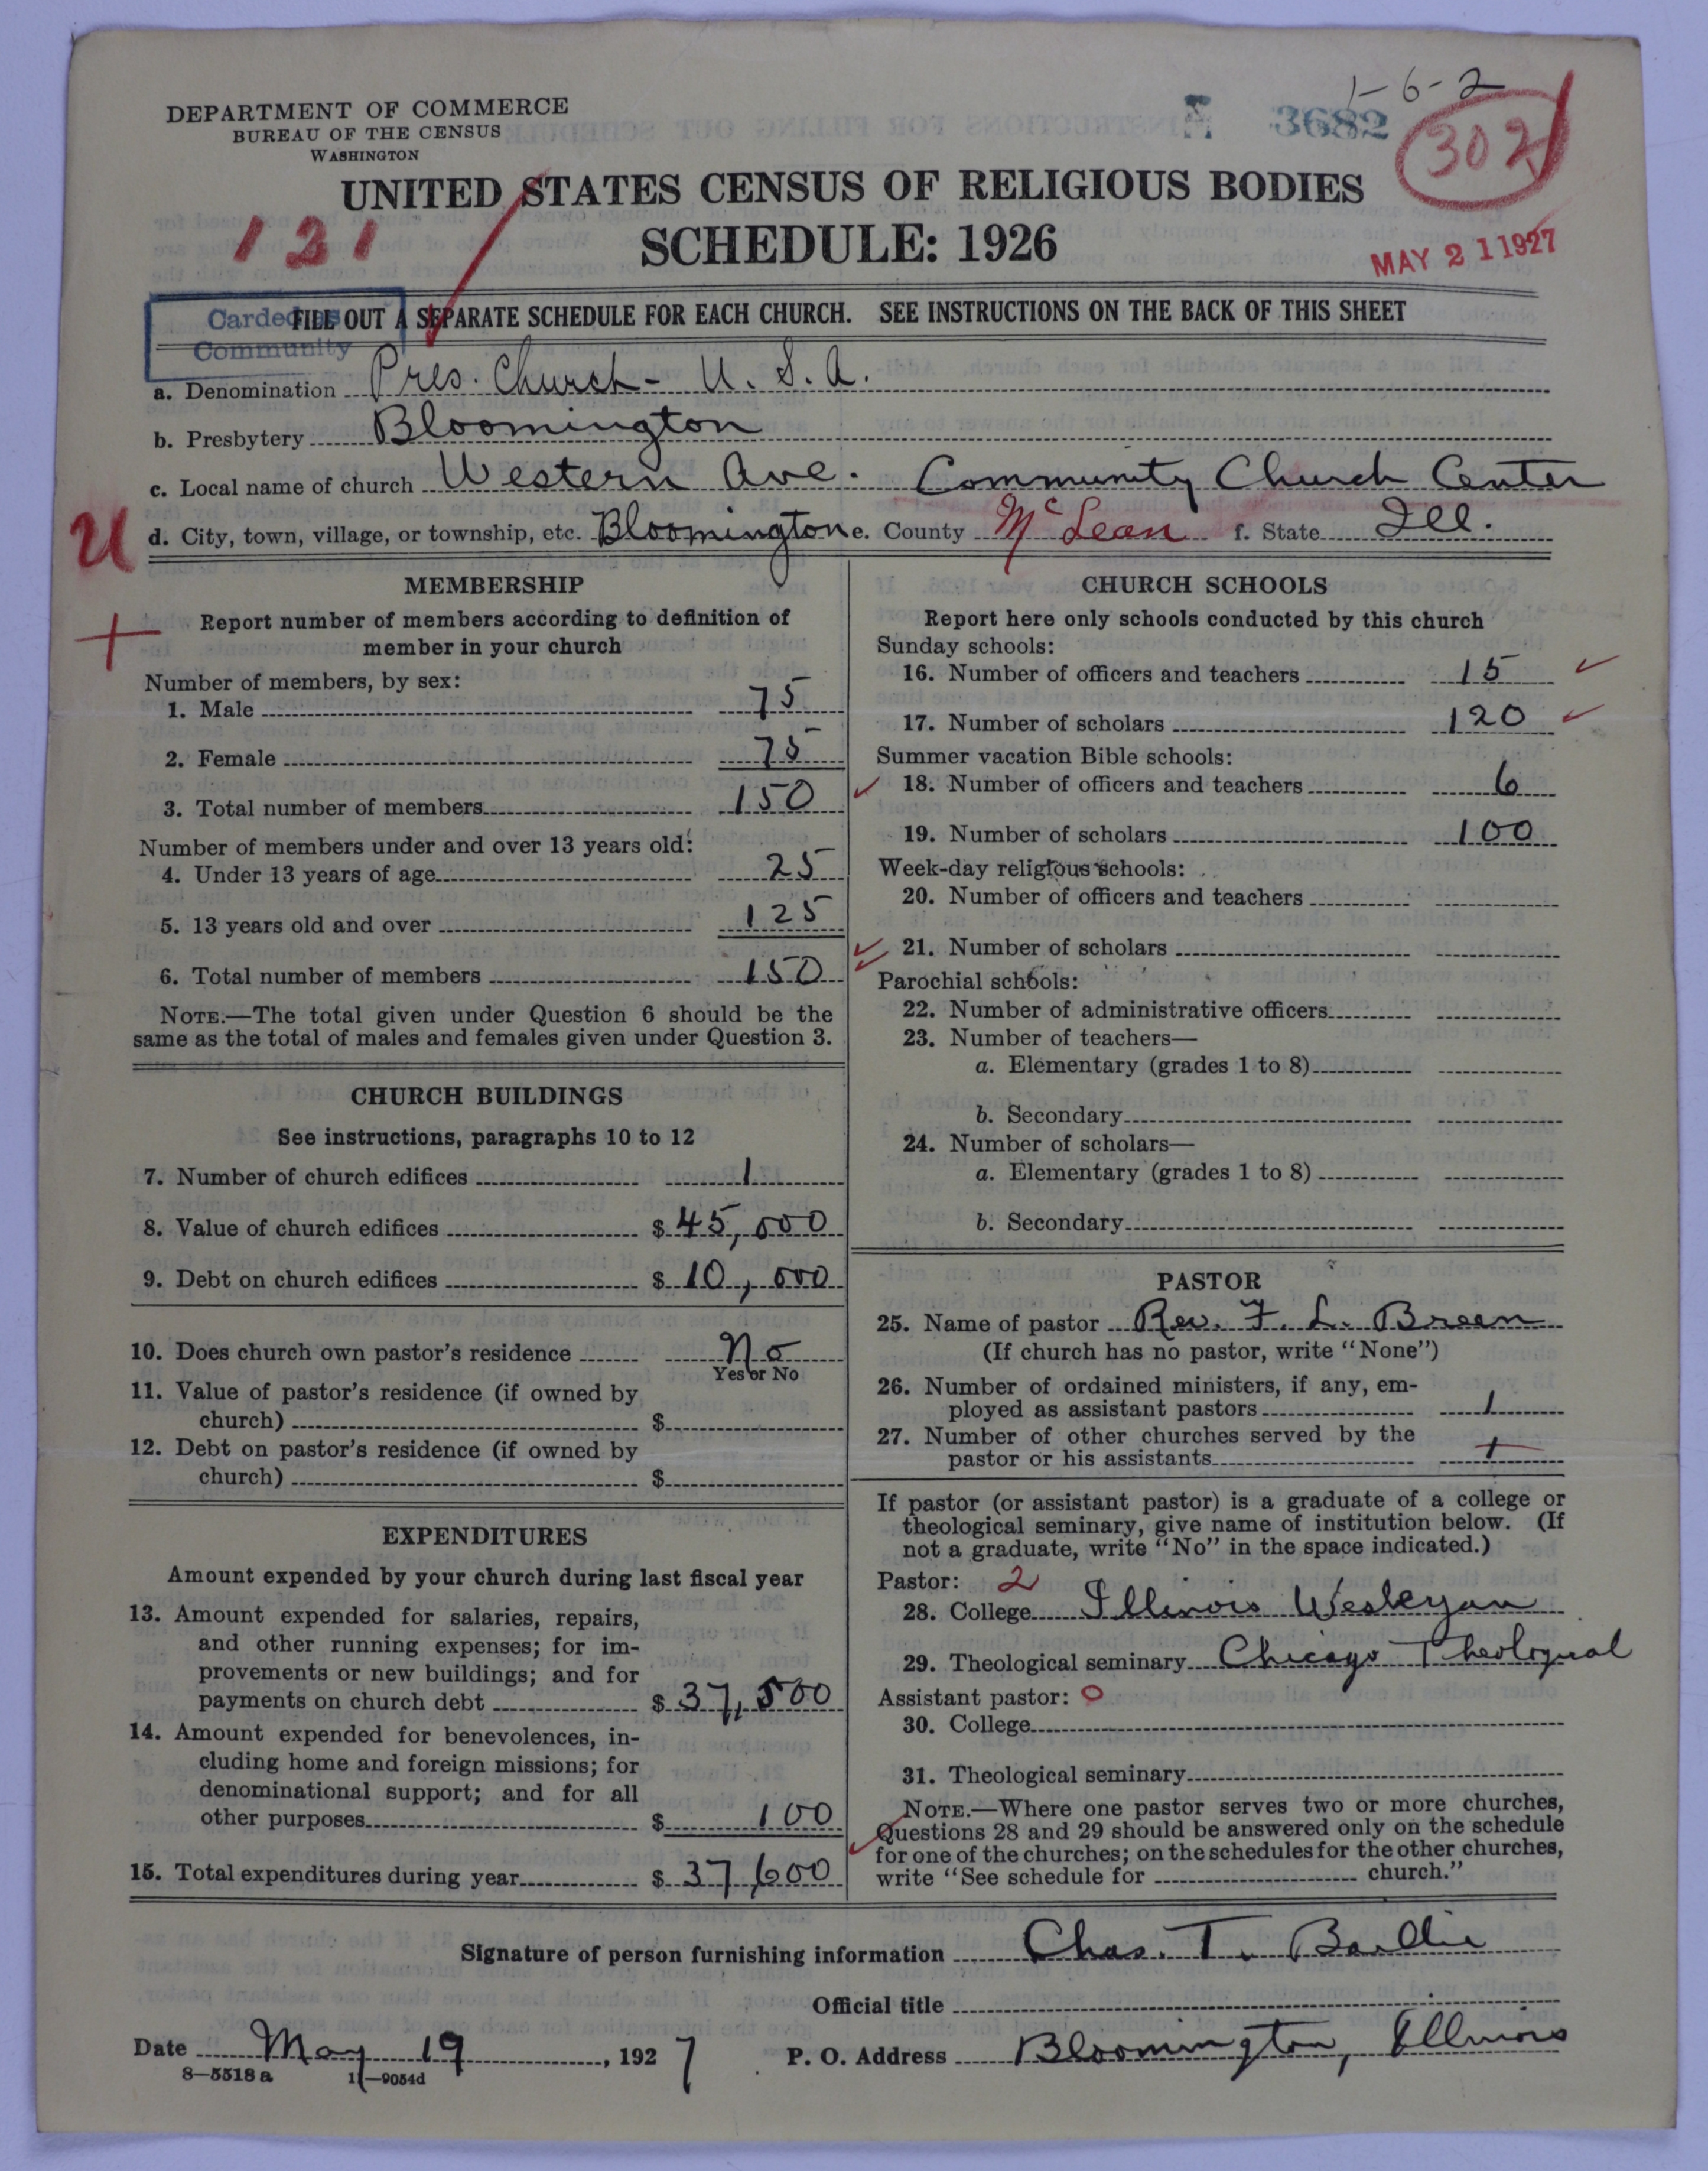 1-6-2
DEPARTMENT OF COMMERCE
BUREAU OF THE CENSUS
WASHINGTON
3682
302
UNITED STATES CENSUS OF RELIGIOUS BODIES
SCHEDULE: 1926
121
MAY 21 1927
Carded as
Community
FILL OUT A SEPARATE SCHEDULE FOR EACH CHURCH. SEE INSTRUCTIONS ON THE BACK OF THIS SHEET
a. Denomination Pres. Church - U. S. A.
b. Presbytery Bloomington
c. Local name of church Western Ave. Community Church Center
U
d. City, town, village, or township, etc. Bloomington e. County McLean f. State Ill.
MEMBERSHIP
Report number of members according to definition of
member in your church
Number of members, by sex:
1. Male 75
2. Female 75
3. Total number of members 150
Number of members under and over 13 years old:
4. Under 13 years of age 25
5. 13 years old and over 125
6. Total number of members 150
NOTE.—The total given under Question 6 should be the
same as the total of males and females given under Question 3.
CHURCH BUILDINGS
See instructions, paragraphs 10 to 12
7. Number of church edifices 1
8. Value of church edifices $45,000
9. Debt on church edifices $10,000
10. Does church own pastor's residence No
Yes or No
11. Value of pastor's residence (if owned by
church) $
12. Debt on pastor's residence (if owned by
church) $
EXPENDITURES
Amount expended by your church during last fiscal year
13. Amount expended for salaries, repairs,
and other running expenses; for im-
provements or new buildings; and for
payments on church debt $37,500
14. Amount expended for benevolences, in-
cluding home and foreign missions; for
denominational support; and for all
other purposes $100
15. Total expenditures during year $37,600
CHURCH SCHOOLS
Report here only schools conducted by this church
Sunday schools:
16. Number of officers and teachers 15
17. Number of scholars 120
Summer vacation Bible schools:
18. Number of officers and teachers 6
19. Number of scholars 100
Week-day religious schools:
20. Number of officers and teachers
21. Number of scholars
Parochial schools:
22. Number of administrative officers
23. Number of teachers—
a. Elementary (grades 1 to 8)
b. Secondary
24. Number of scholars—
a. Elementary (grades 1 to 8)
b. Secondary
PASTOR
25. Name of pastor Rev. F. L. Breen
(If church has no pastor, write "None")
26. Number of ordained ministers, if any, em-
ployed as assistant pastors 1
27. Number of other churches served by the
pastor or his assistants 1
If pastor (or assistant pastor) is a graduate of a college or
theological seminary, give name of institution below. (If
not a graduate, write "No" in the space indicated.)
Pastor: 2
28. College Illinois Wesleyan
29. Theological seminary Chicago Theological
Assistant pastor: 0
30. College
31. Theological seminary
NOTE.—Where one pastor serves two or more churches,
Questions 28 and 29 should be answered only on the schedule
for one of the churches; on the schedules for the other churches,
write "See schedule for church."
Signature of person furnishing information Chas. T. Baillie
Official title
Date May 19, 1927 P. O. Address Bloomington, Illinois
8—5518 a 11—9054d